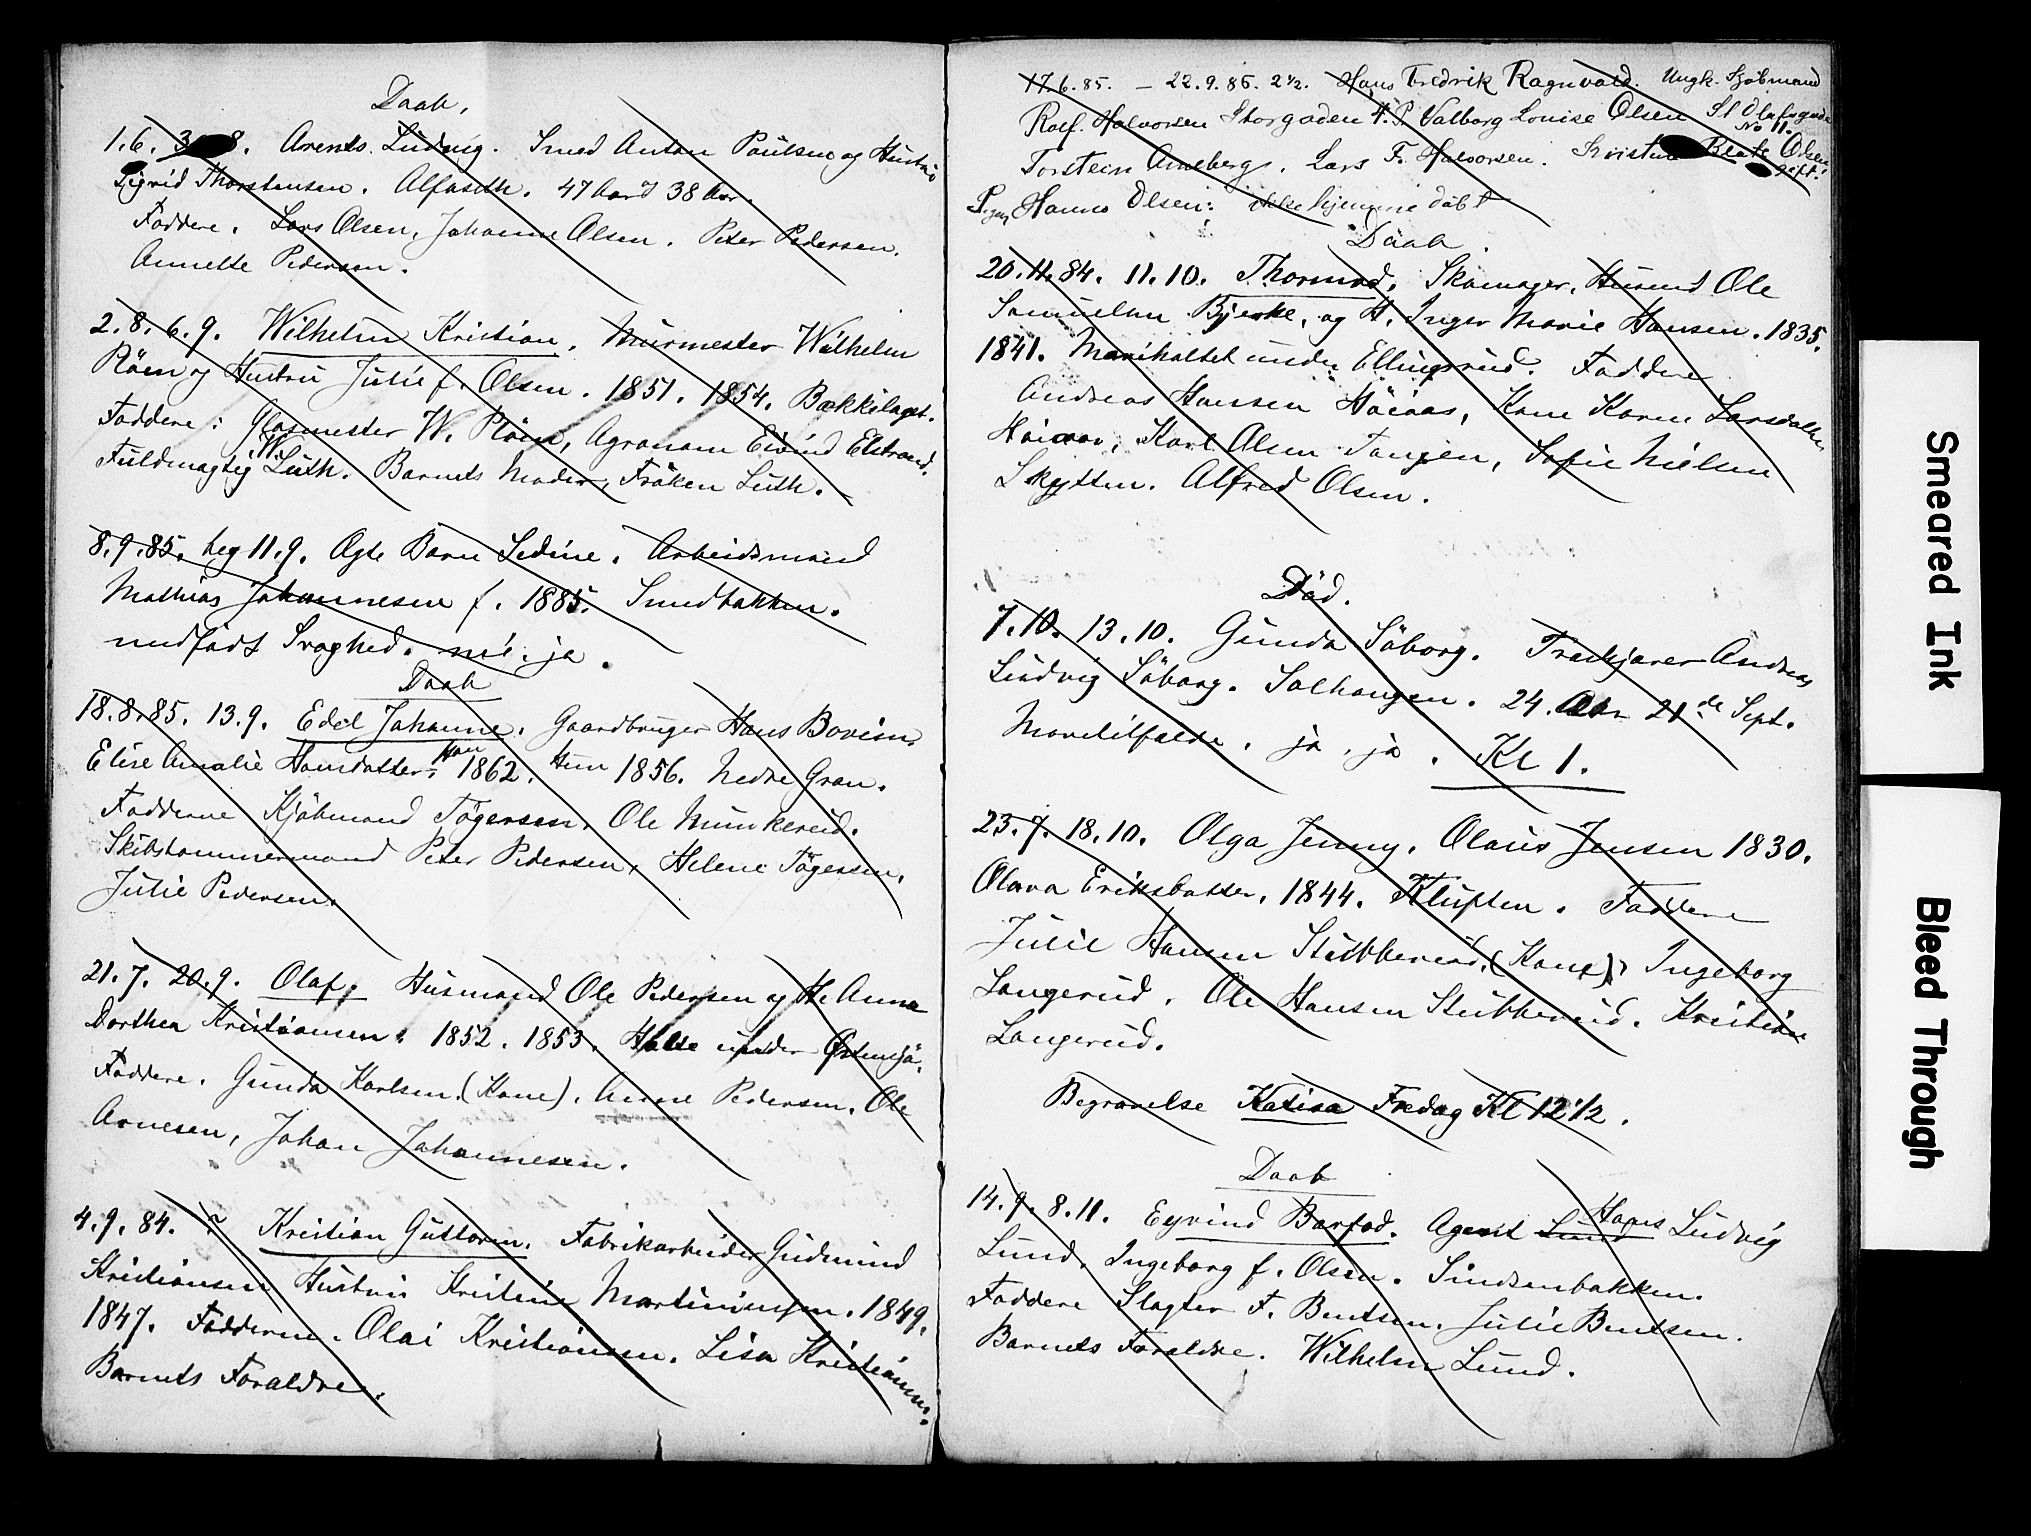 Daab.
1.6. 3. 8. Arents Ludvig. Smed Anton Paulsen og Hustru
Sigrid Thorstensen. Alfaseth. 47 Aar & 38 Aar.
Faddere. Lars Olsen, Johanne Olsen. Peter Pedersen.
Annette Pedersen.
2.8. 6.9. Wilhelm Kristian. Murmester Wilhelm
og Hustru Julie f. Olsen. 1851. 1854. Bækkelaget.
Faddere: Glasmester W. Agronom Eivind Elstrand.
Fuldmægtig W. Luth. Barnets Moder, Frøken Luth.
8.9.85. beg 11.9. Ægte Barn Sedine. Arbeidsmand
Mathias Johannesen f. 1885. Smedbakken.
medfødt Svaghed. nei. ja.
Daab
18.8.85. 13.9. Edel Johanne. Gaardbruger Hans Bovim
Elise Amalie Hansdatter. Han 1862. Hun 1856. Nedre Gran.
Fadderne Kjøbmand Tøgersen. Ole Munkerud.
Skibstømmermand Peter Pedersen, Helene Tøgersen,
Julie Pedersen.
21.7. 20.9. Olaf. Husmand Ole Pedersen og H. Anna
Dorthea Kristiansen. 1852. 1853. under Østensjø.
Faddere. Gunda Karlsen (Kone). Anne Pedersen. Ole
Arnesen, Johan Johannesen.
4.9.84. ? Kristian Guttorm. Fabrikarbeider Gudmund
Kristiansen Hustru Kristine Martinussen. 1849.
1847. Fadderne. Olai Kristiansen. Lisa Kristiansen.
Barnets Forældre.
17.6.85. – 22.9.85. 2½. Hans Fredrik Ragnvald. Ungk. Sjøbmand
Rolf. Halvorsen Storgaden 4. P. Valborg Louise Olsen St Olafsgade
No 11.
Torstein Arneberg. Lars F. Halvorsen. Kristine Beate Olsen
gift.
Pigen Hanna Olsen: ikke hjemmedøbt
Daab.
20.11.84. 11.10. Thormod. Skomager. Husmd Ole
Samuelsen Bjerke, og H. Inger Marie Hansen. 1835.
1841. Mariholtet under Ellingsrud. Faddere
Andreas Hansen Høiaas, Kone Karen Larsdatter
Høiaas, Karl Olsen Tangen, Sofie Nielsen
Skytten. Alfred Olsen.
Død.
7.10. 13.10. Gunda Søborg. Trækjører Andreas
Ludvig Søborg. Solhaugen. 24 Aar 21de Sept.
Mavetilfælde. ja. ja. Kl 1.
23.7. 18.10. Olga Jenny. Olaus Jensen 1830.
Olava Eriksdatter. 1844. Kluften. Faddere
Julie Hansen Stubberud. (Kone), Ingeborg
Langerud. Ole Hansen Stubberud. Kristian
Langerud.
Begravelse Katisa Fredag Kl 12½.
Daab
14.9. 8.11. Eyvind Barfod. Agent Lund Hans Ludvig
Lund. Ingeborg f. Olsen. Simensbakken.
Faddere Slagter F. Bentsen. Julie Bentsen.
Barnets Forældre. Wilhelm Lund.
Smeared Ink
Bleed Through